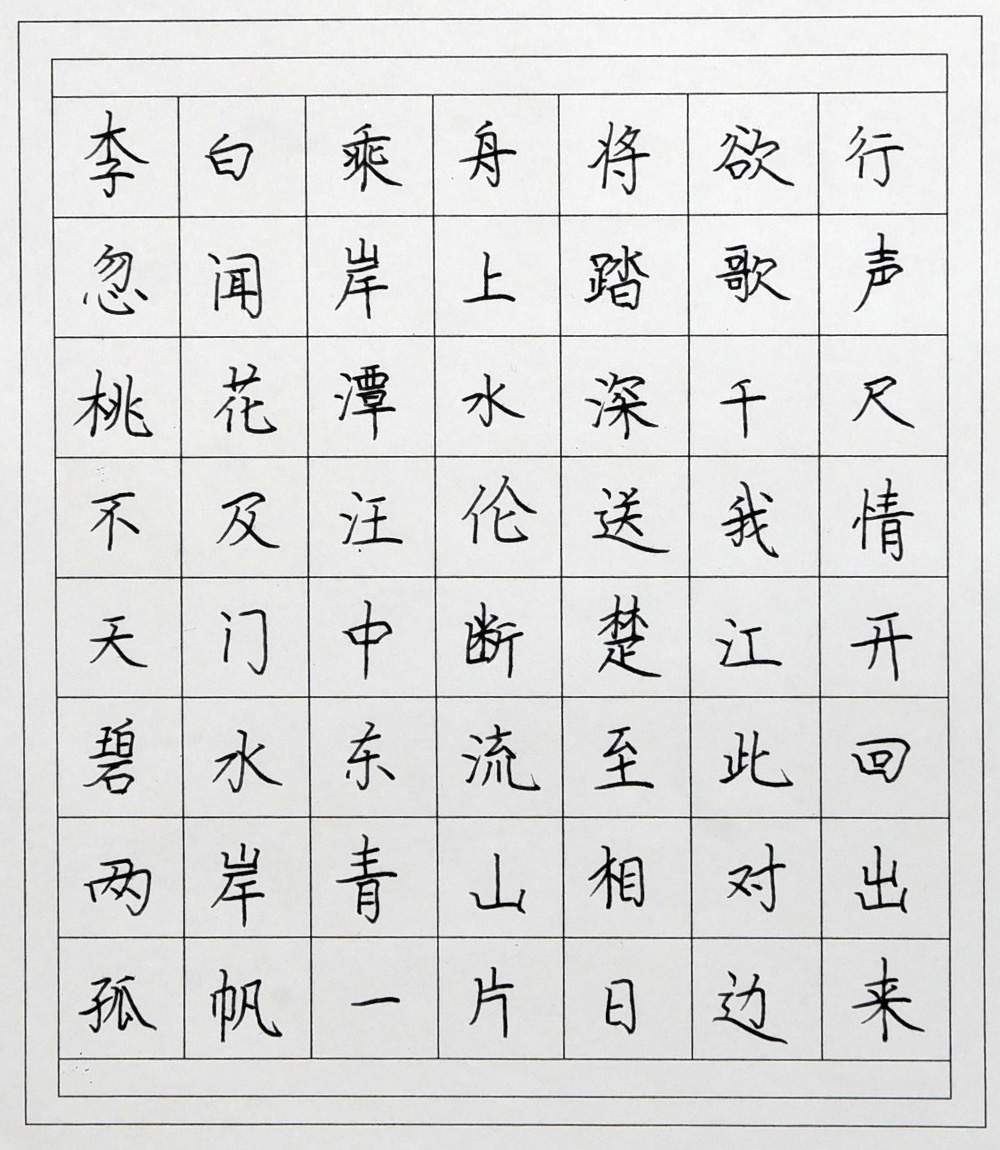 李白乘舟将欲行
忽闻岸上踏歌声
桃花潭水深千尺
不及汪伦送我情
天门中断楚江开
碧水东流至此回
两岸青山相对出
孤帆一片日边来